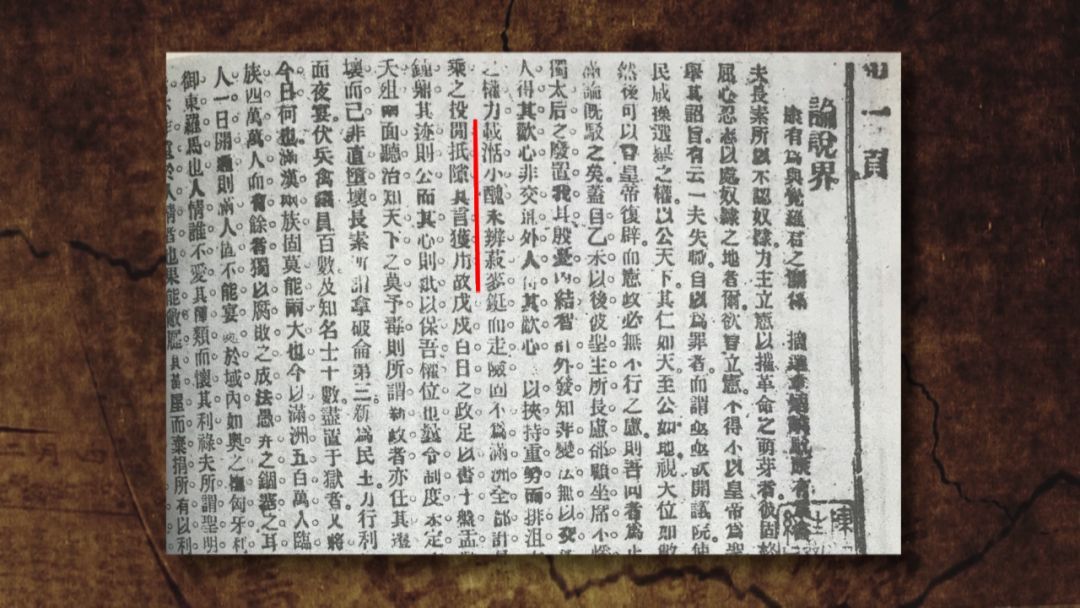 一頁
論說界
康有為與覺羅君之關係
夫長素所以不認奴隸力主立憲以摧革命之萌芽者彼固終
屈心忍志以處奴隸之地者爾欲言立憲不得小以皇帝為聖
舉其詔旨有云一夫失職自以為罪者而謂亟亟欲開議院使
民咸操選舉之權以公天下其仁如天至公如地視天位如敝
然後可以言皇帝復辟而憲政必無不行之慮則吾向者為止
論既駁之矣蓋自乙未以後彼聖主所長慮卻顧坐席不煖
獨太后之廢置我耳殷憂內結智計外發知非變法無以交
人得其歡心非交通外人得其歡心 以挾持重勢而排沮
之權力載湉小醜未辨菽麥鋌而走險固不為滿洲全部計
乘之投間抵隙其言獲用故戊戌百日之政足以書于盤盂
鐘鼎其迹則公而其心則祇以保吾權位也曩令制度未定
夭殂南面聽治知天下之莫予毒則所謂新政者亦任其遷
壞而已非直墮壞長素所謂拿破侖第三新為民主力行利
面夜宴伏兵禽議員百數及知名士十數盡置于獄者又將
今日何也滿漢兩族固莫能兩大也今以滿洲五百萬人臨
族四萬萬人而有餘者獨以腐敗之成法愚弄之錮塞之耳
人一日開通則滿人固不能晏處於域內如奧之撫匈牙利
御東羅馬也人情誰不愛其種類而懷其利祿夫所謂聖明
於人情者也果能敝屣其黃屋而棄捐所有以利